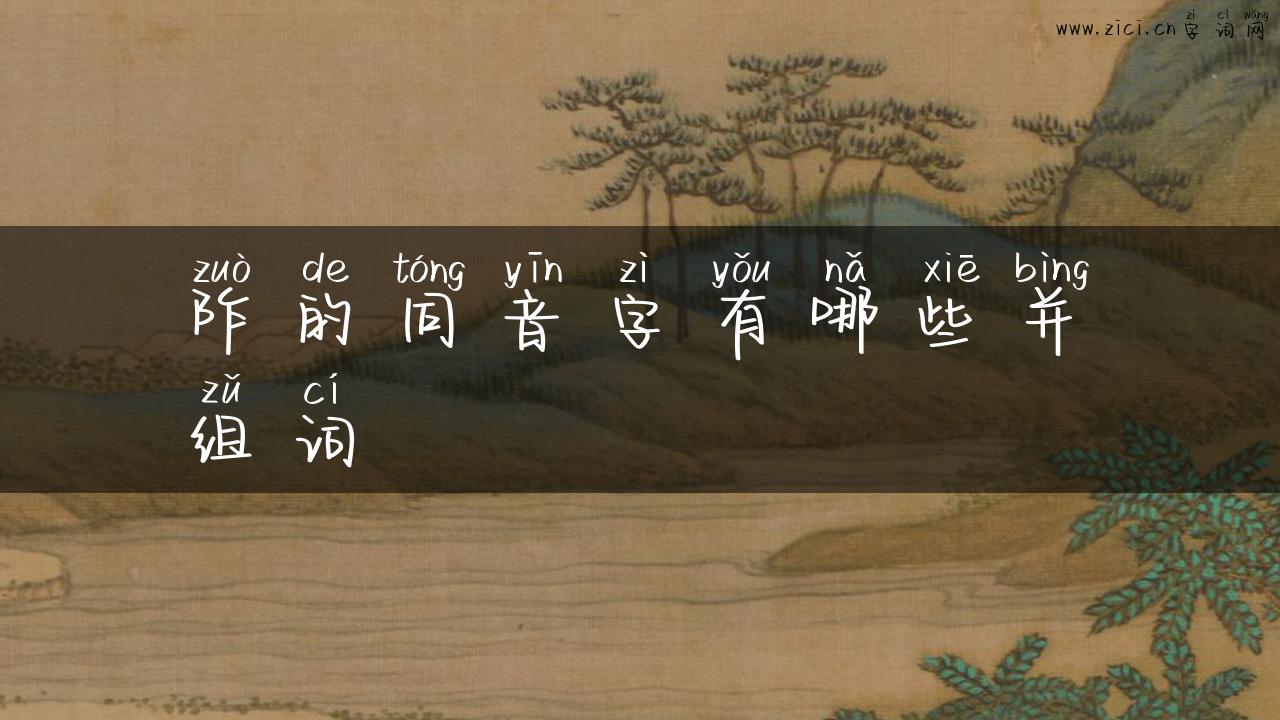 zì cí wǎng
www.zici.cn 字词网
zuò de tóng yīn zì yǒu nǎ xiē bìng
阼的同音字有哪些并
zǔ cí
组词